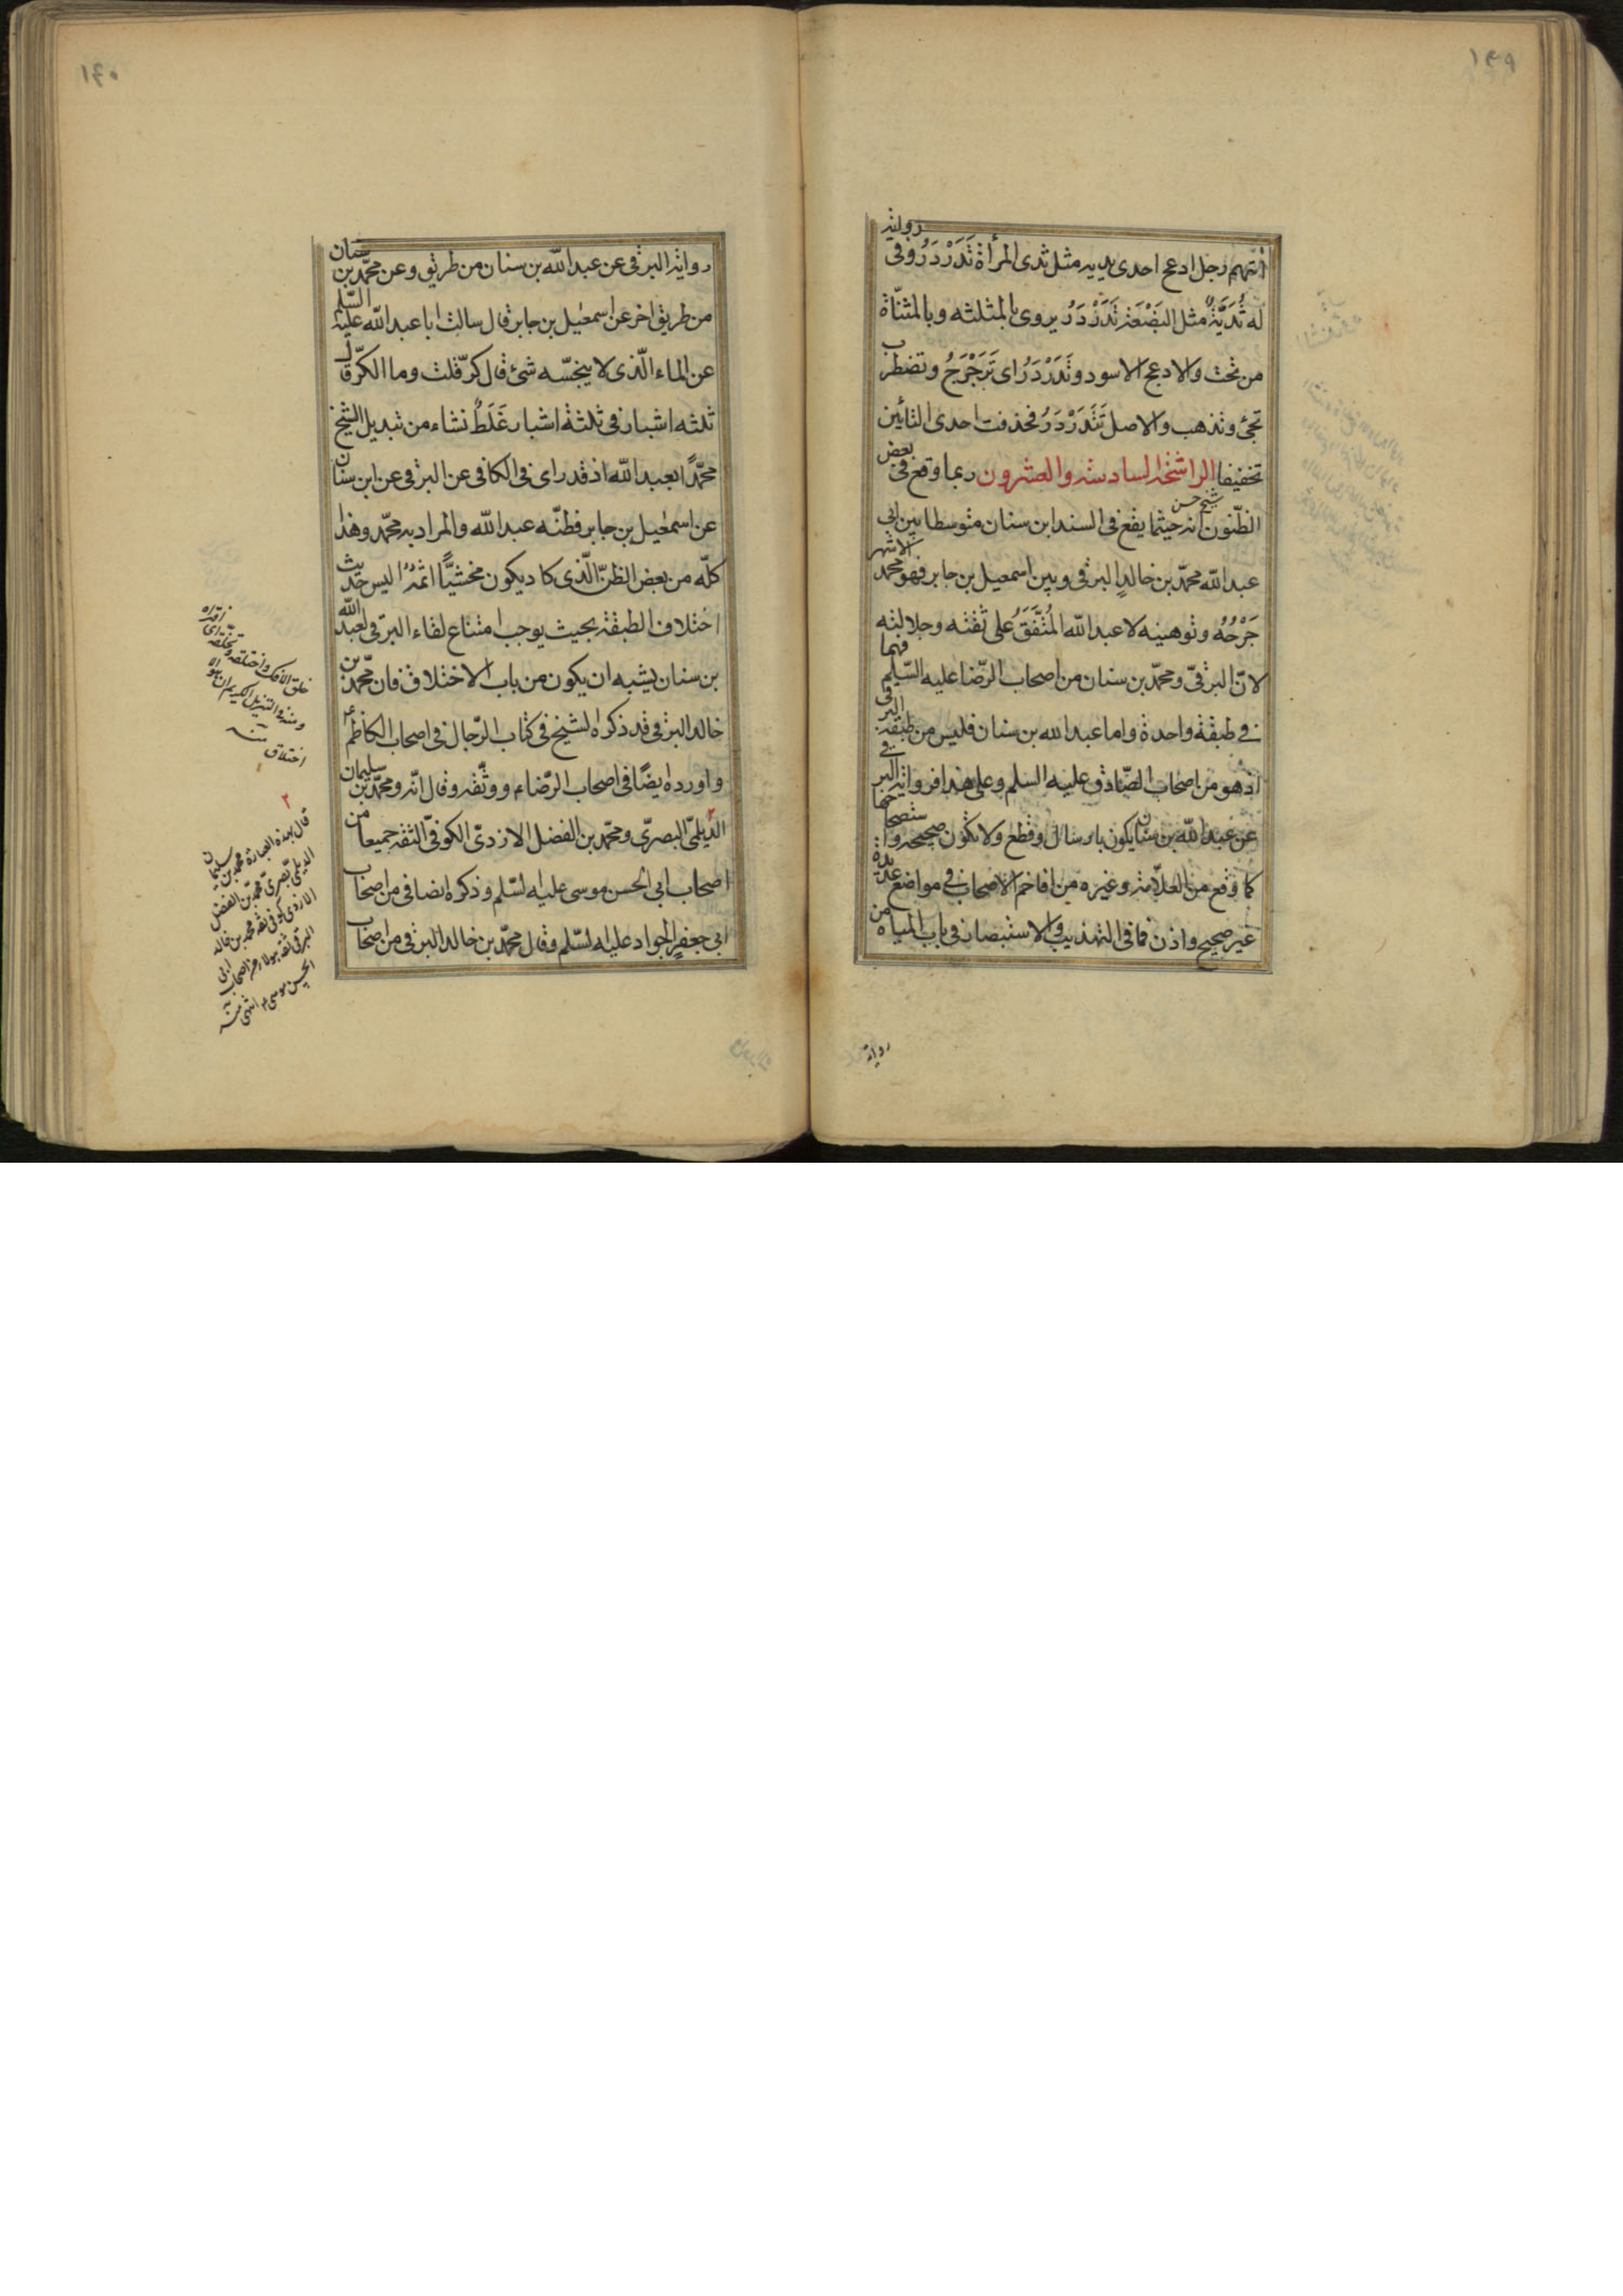 ١٤٩
آيتهم رجل ادعج احدى يديه مثل ثدى المرأة تَدَرْدَرُ وفى رواية
له ثُدَيَّةٌ مثل البَضْعَة تَدَرْدَرُ يروى بالمثلثه وبالمثنّاة
من تحت والادعج الاسود وتَدَرْدَرُ اى تَرَجْرَجُ وتضطرب
تجئ وتذهب والاصل تَتَدَرْدَرُ فحذفت احدى التائين
تخفيفا الراشخة السادسة والعشرون ربما وقع فى بعض
الظّنون انه حيثما يقع فى السند ابن سنان متوسطا بين ابى
شيخ حسن
عبد الله محمّد بن خالدٍ البرقى وبين اسمعيل بن جابر فهو محمد الاشهر
جَرْحُهُ وتوهينه لا عبد الله المُتَّفَقُ على ثقته وجلالته
لانّ البرقىّ ومحمّد بن سنان من اصحاب الرّضا عليه السّلم فهما
فى طبقة واحدة واما عبد الله بن سنان فليس من طبقة البرقى
اذ هو من اصحاب الصّادق عليه السلم وعلى هذا فرواية البرقى
عن عبد الله بن سنان يكون بارسال وقطع ولا تكون صحيحه واستصحاحها
كما وقع من العلّامة وغيره من افاخم الاصحاب فى مواضع عديدة
غير صحيح واذن فما فى التهذيب والاستبصار فى باب المياه من
رواية
١٥٠
رواية البرقى عن عبد الله بن سنان من طريق وعن محمّد بن سنان
من طريق اخر عن اسمعيل بن جابر قال سالت ابا عبد الله عليه السّلم
عن الماء الّذى لا ينجّسه شئ قال كرّ قلت وما الكرّ قال
ثلثه اشبار فى ثلثة اشبار غَلَطٌ نشاء من تبديل الشيخ
محمّدًا بعبد الله اذ قد راى فى الكافى عن البرقى عن ابن سنان
عن اسمعيل بن جابر فظنّه عبد الله والمراد به محمّد وهذا
كلّه من بعض الظنّ الّذى كاد يكون مخشيًّا اثمُهُ اليس حديث
اختلاف الطبقة بحيث يوجب امتناع لقاء البرقى لعبد الله
بن سنان يشبه ان يكون من باب الاختلاق فان محمّد بن
خالد البرقى قد ذكره الشيخ فى كتاب الرّجال فى اصحاب الكاظم ع
واورده ايضًا فى اصحاب الرّضاء ووثّقه وقال انّه ومحمّد بن سليمان
الدّيلمىّ البصرىّ ومحمّد بن الفضل الازدىّ الكوفىّ الثقة جميعا من
اصحاب ابى الحسن موسى عليه السّلم وذكره ايضا فى من اصحاب
ابى جعفرٍ الجواد عليه السّلم وقال محمّد بن خالد البرقى من اصحاب
خلق الافك واختلقه وتخلّقه اى افتراه
ومنه فى التنزيل الكريم ان هذا الا
اختلاق منه
٢
قال بهذه العبارة محمد بن سليمان
الديلمى بصرىّ محمد بن الفضل
الازدى كوفى ثقة محمد بن خالد
البرقى ثقة هولاء من اصحاب ابى
الحسن موسى ع انتهى منه